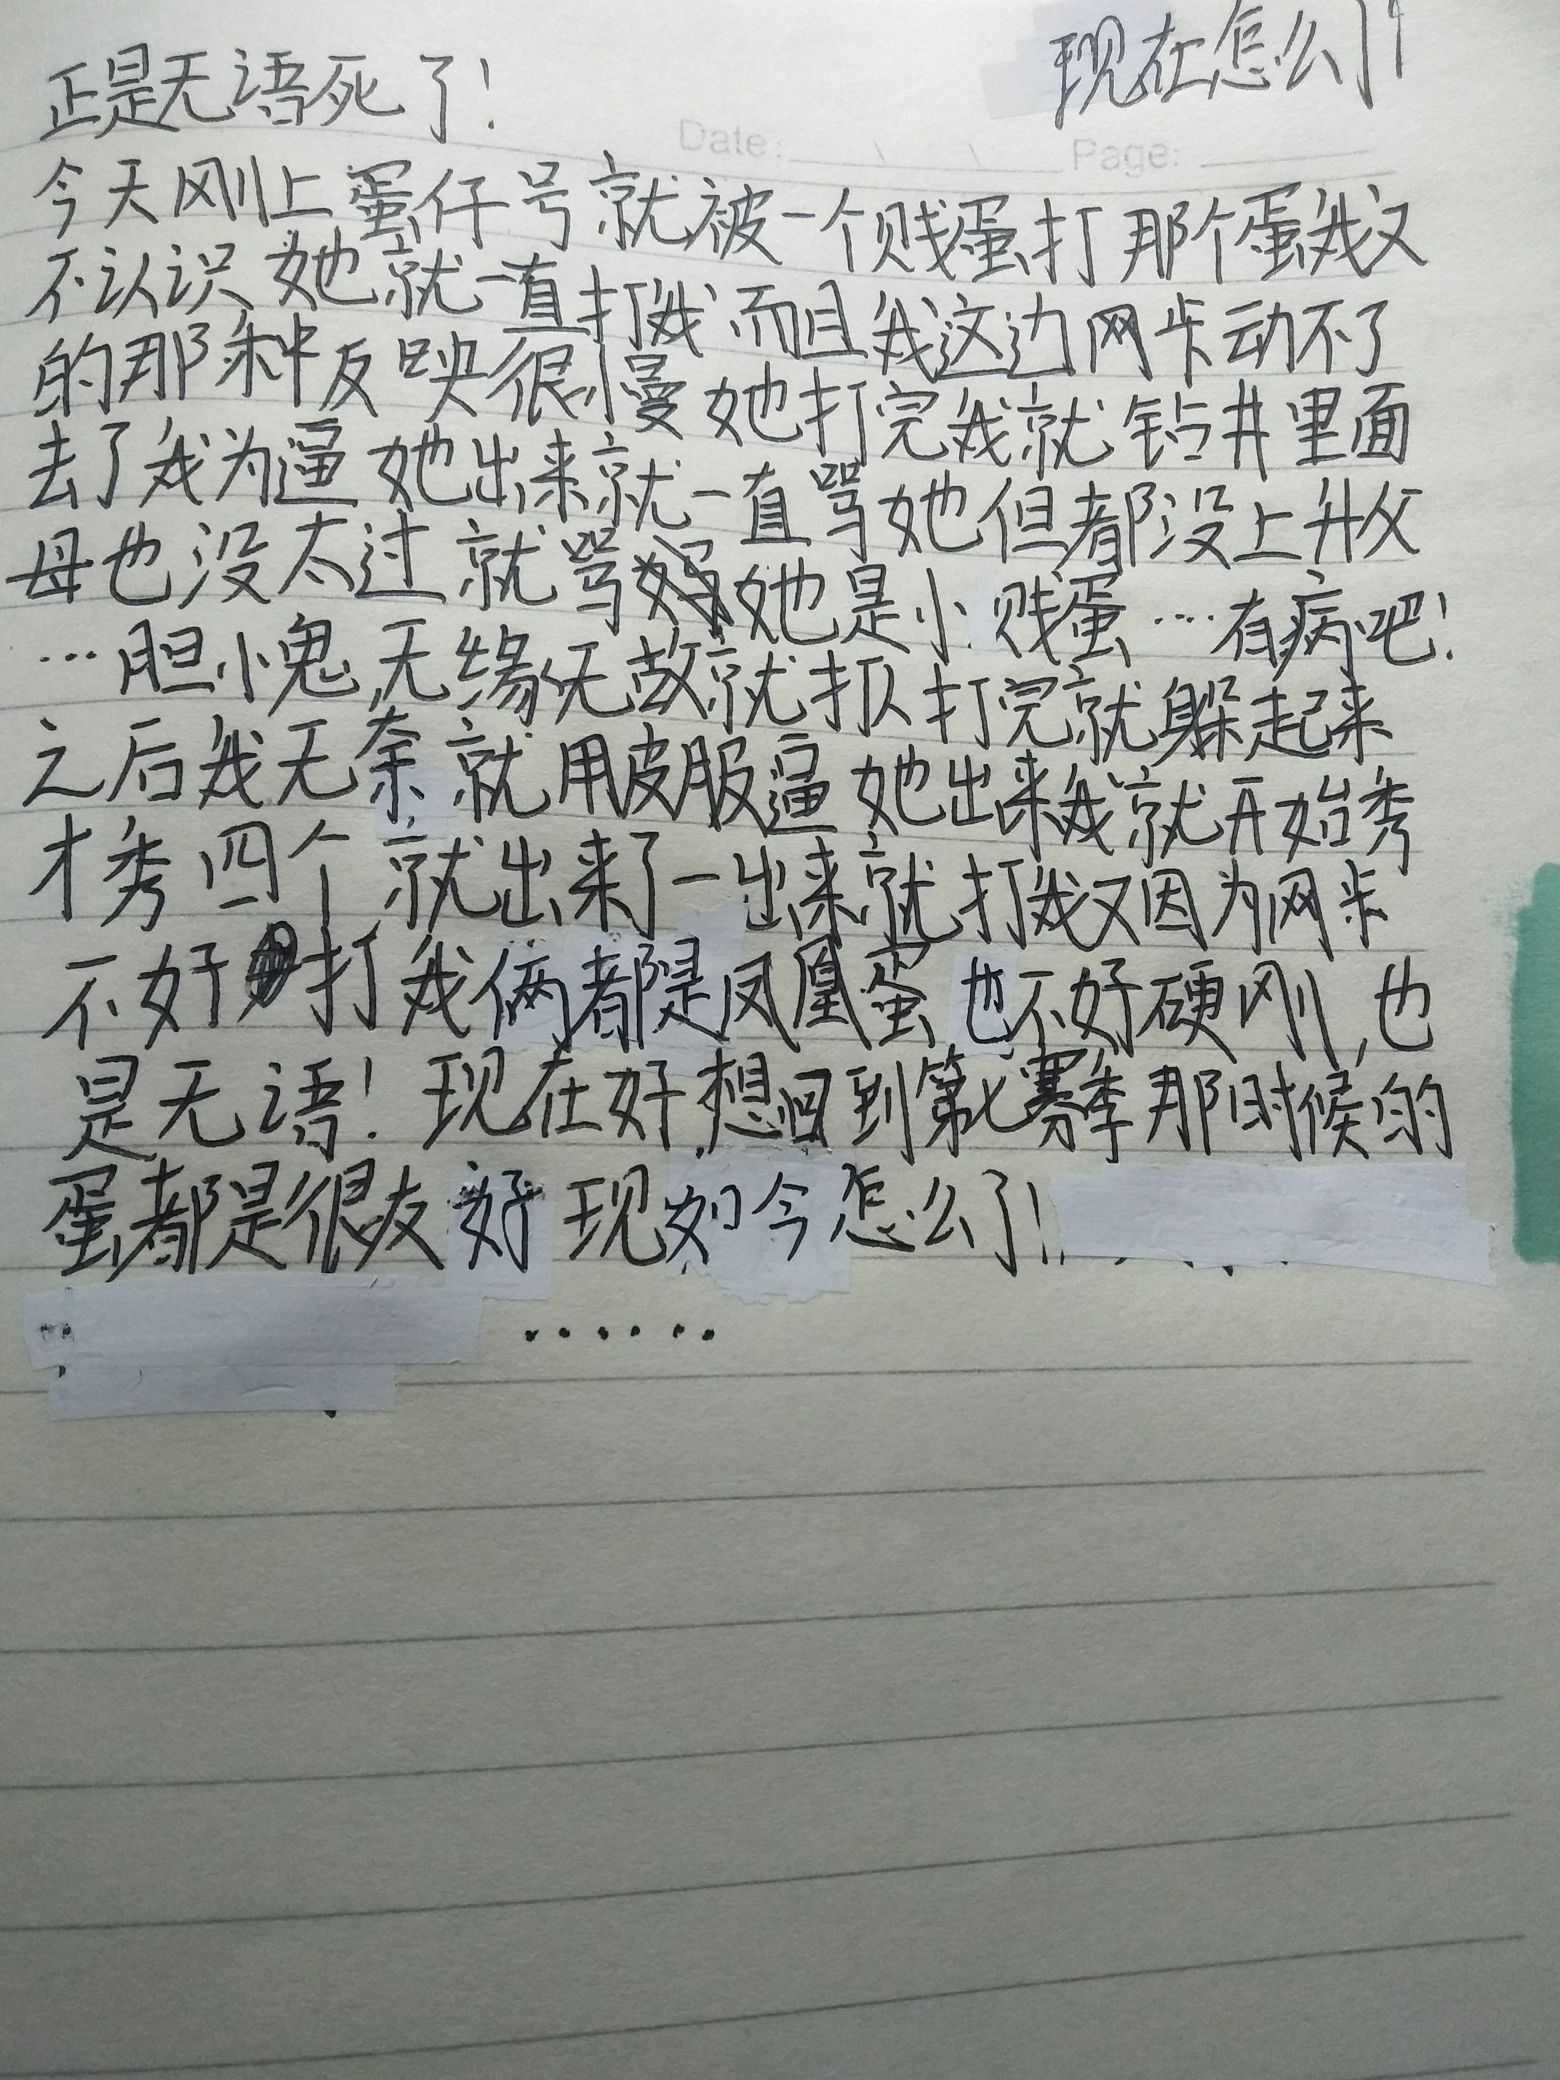 现在怎么了!
正是无语死了!
Date: Page:
今天刚上蛋仔号就被一个贱蛋打那个蛋我又
不认识她就一直打我而且我这边网卡动不了
的那种反映很慢她打完我就钻井里面
去了我为逼她出来就一直骂她但都没上升父
母也没太过就骂她是小贱蛋…有病吧!
…胆小鬼,无缘无故就打人打完就躲起来
之后我无奈就用皮服逼她出来我就开始秀
才秀四个就出来了一出来就打我又因为网卡
不好打我俩都是凤凰蛋也不好硬刚,也
是无语!现在好想回到第七赛季那时候的
蛋都是很友好现如今怎么了!
......